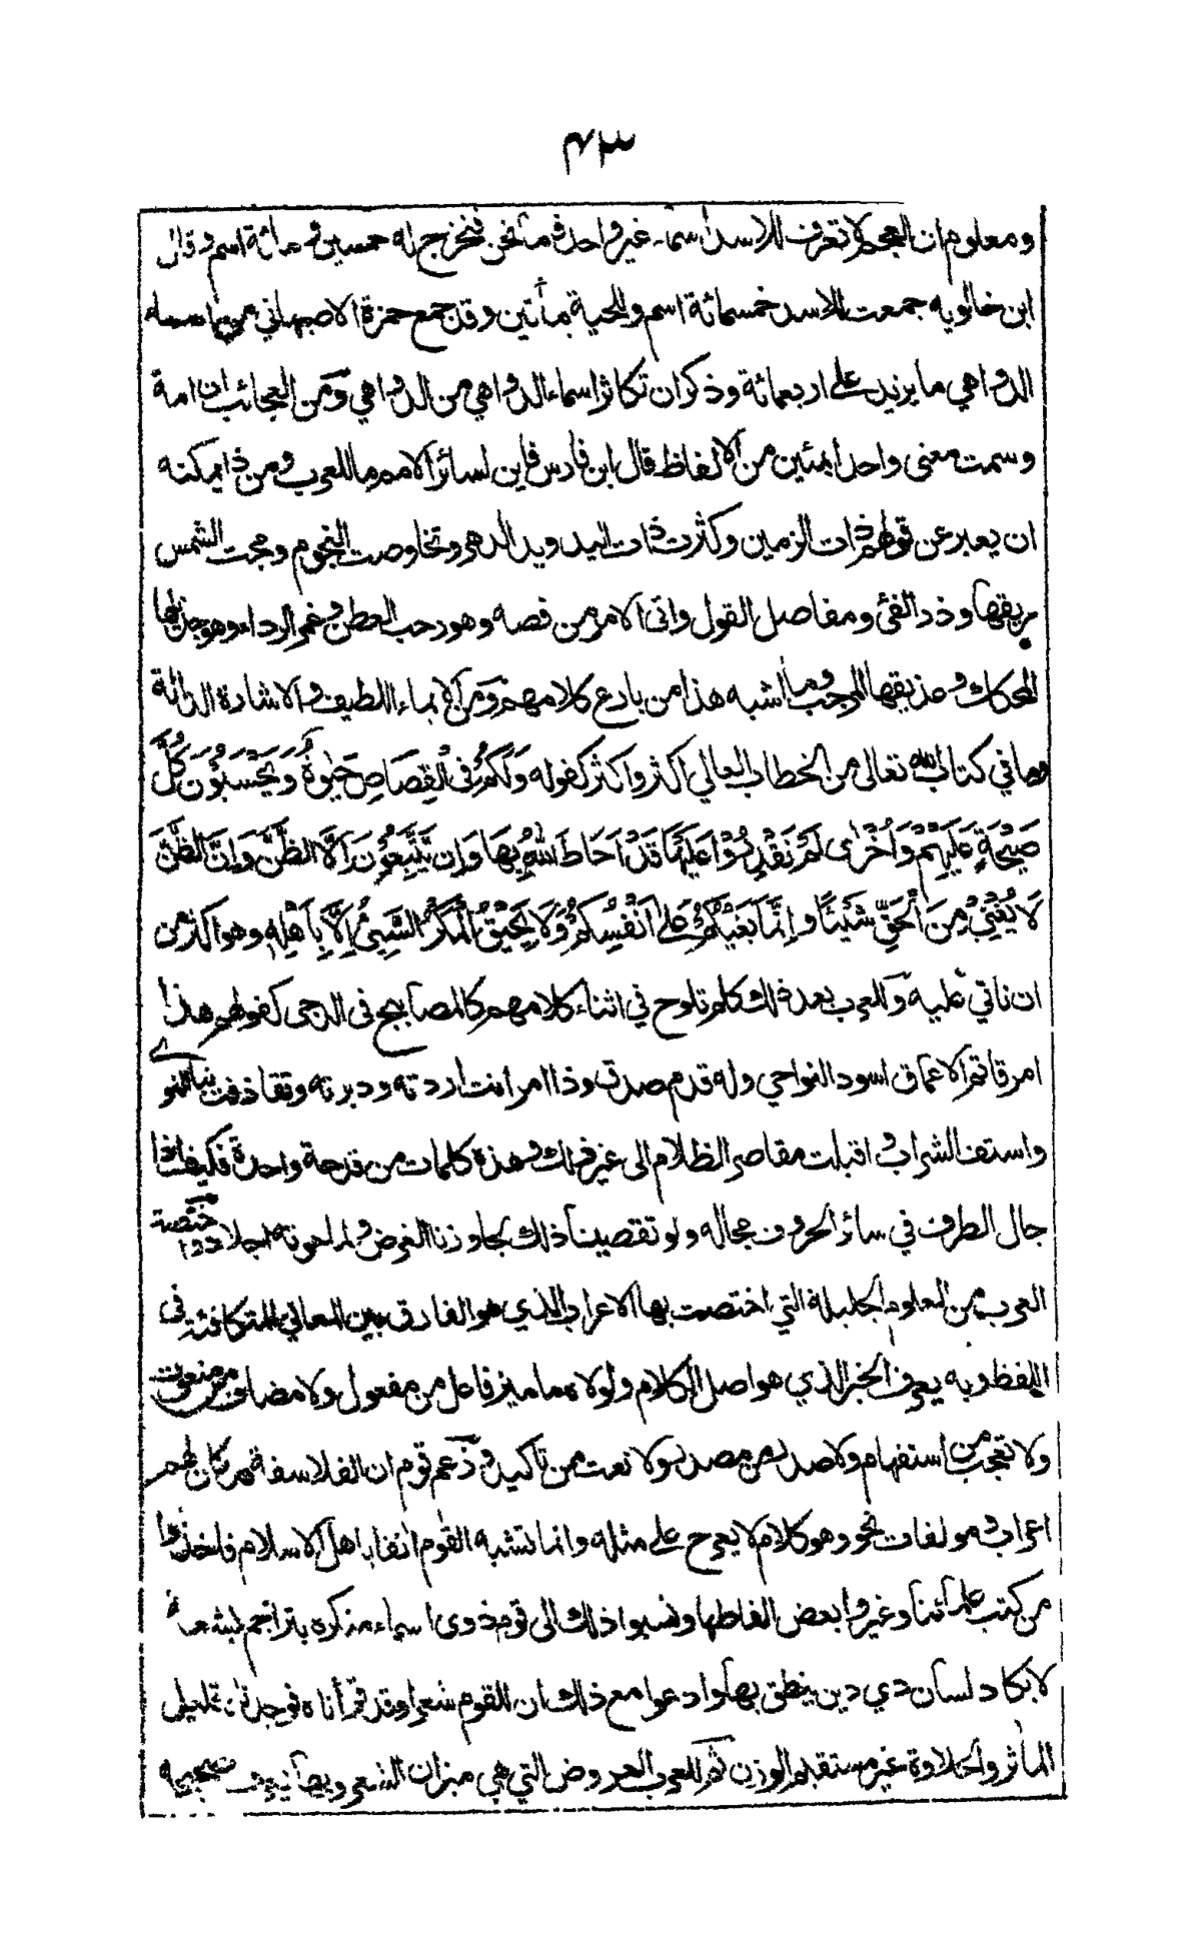 ٤٣
ومعلوم ان العجم لا تعرف للاسد اسماء غير واحد فاما نحن فنخرج له خمسين و مائة اسم وقال
ابن خالويه جمعت للاسد خمسمائة اسم وللحية مأتين وقد جمع حمزة الاصبهاني من اسماء
الدواهي ما يزيد على اربعمائة وذكر ان تكاثر اسماء الدواهي من الدواهي ومن العجائب ان امة
وسمت معنى واحدا بمئين من الالفاظ قال ابن فارس فاين لسائر الامم ما للعرب ومن ذا يمكنه
ان يعبر عن قولهم ذات الزمين وكثرت ذات اليد ويد الدهر وتخاوصت النجوم ومجت الشمس
ريقها وذر الفئ ومفاصل القول واتى الامر من فصه وهو رحب العطن وغمر الرداء وهو جذيلها
المحكك وعذيقها المرجب وما اشبه هذا من بارع كلامهم ومن الايماء اللطيف والاشارة الدالة
وما في كتاب الله تعالى من الخطاب العالي اكثر واكثر كقوله وَلَكُمْ فِى الْقِصَاصِ حَيٰوةٌ وَيَحْسَبُوْنَ كُلَّ
صَيْحَةٍ عَلَيْهِمْ وَاُخْرٰى لَمْ تَقْدِرُوْا عَلَيْهَا قَدْ اَحَاطَ اللّٰهُ بِهَا وَاِن يَّتَّبِعُوْنَ اِلَّا الظَّنَّ وَاِنَّ الظَّنَّ
لَا يُغْنِيْ مِنَ الْحَقِّ شَيْئًا وَاِنَّمَا بَغْيُكُمْ عَلٰى اَنْفُسِكُمْ وَلَا يَحِيْقُ الْمَكْرُ السَّيِّئُ اِلَّا بِاَهْلِهٖ وهو اكثر من
ان ناتي عليه وللعرب بعد ذلك كلم تلوح في اثناء كلامهم كالمصابيح فى الدجى كقولهم هذا
امر قاتم الاعماق اسود النواحي وله قدم صدق وذا امر انت اردته ودبرته وتقاذفت بنا النوى
واستف الشراب و اقبلت مقاصر الظلام الى غير ذلك وهذه كلمات من قرحة واحدة فكيف اذا
جال الطرف في سائر الحروف مجاله ولو تقصينا ذلك لجاوزنا الغرض ولما حوته اجلاد
العرب من العلوم الجليلة التي اختصت بها الاعراب الذي هو الفارق بين المعاني المتكافئة فى
اللفظ وبه يعرف الخبر الذي هو اصل الكلام ولولاه ما ميز فاعل من مفعول ولا مضاف من منعوت
ولا تعجب من استفهام ولا صدر من مصدر ولا نعت من تاكيد وزعم قوم ان الفلاسفة قد كان لهم
اعراب و مولفات نحو وهو كلام لا يعرج على مثله وانما تشبه القوم انفا باهل الاسلام فاخذوا
من كتب علمائنا وغيروا بعض الفاظها ونسبوا ذلك الى قوم ذوى اسماء منكرة بتراجم بشعة
لا يكاد لسان ذي دين ينطق بها وادعوا مع ذلك ان للقوم شعرا وقد قرأناه فوجدناه قليل
المآثر والحلاوة غير مستقيم الوزن ثم للعرب العروض التي هي ميزان الشعر وبها يعرف صحيحه